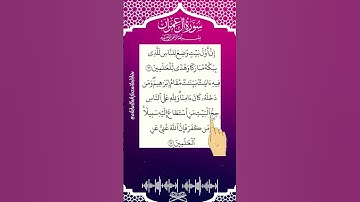 سُورَةُ آلِ عِمْرَان
إِنَّ أَوَّلَ بَيْتٍ وُضِعَ لِلنَّاسِ لَلَّذِى
بِبَكَّةَ مُبَارَكًا وَهُدًى لِّلْعَٰلَمِينَ ۝
فِيهِ ءَايَٰتٌۢ بَيِّنَٰتٌ مَّقَامُ إِبْرَٰهِيمَ وَمَن
دَخَلَهُۥ كَانَ ءَامِنًا وَلِلَّهِ عَلَى النَّاسِ
حِجُّ الْبَيْتِ مَنِ اسْتَطَاعَ إِلَيْهِ سَبِيلًا
وَمَن كَفَرَ فَإِنَّ اللَّهَ غَنِىٌّ عَنِ
الْعَٰلَمِينَ ۝